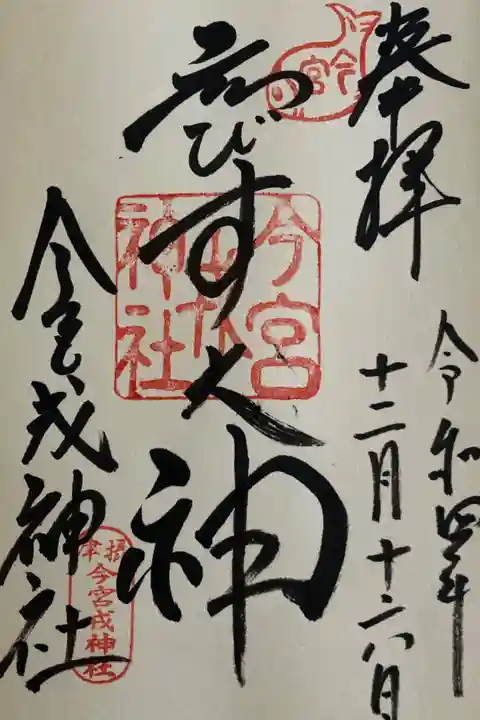 奉拝
令和四年
十二月十六日
今宮
ゑびす大神
今宮戎神社
今宮戎神社
摂津
今宮戎神社